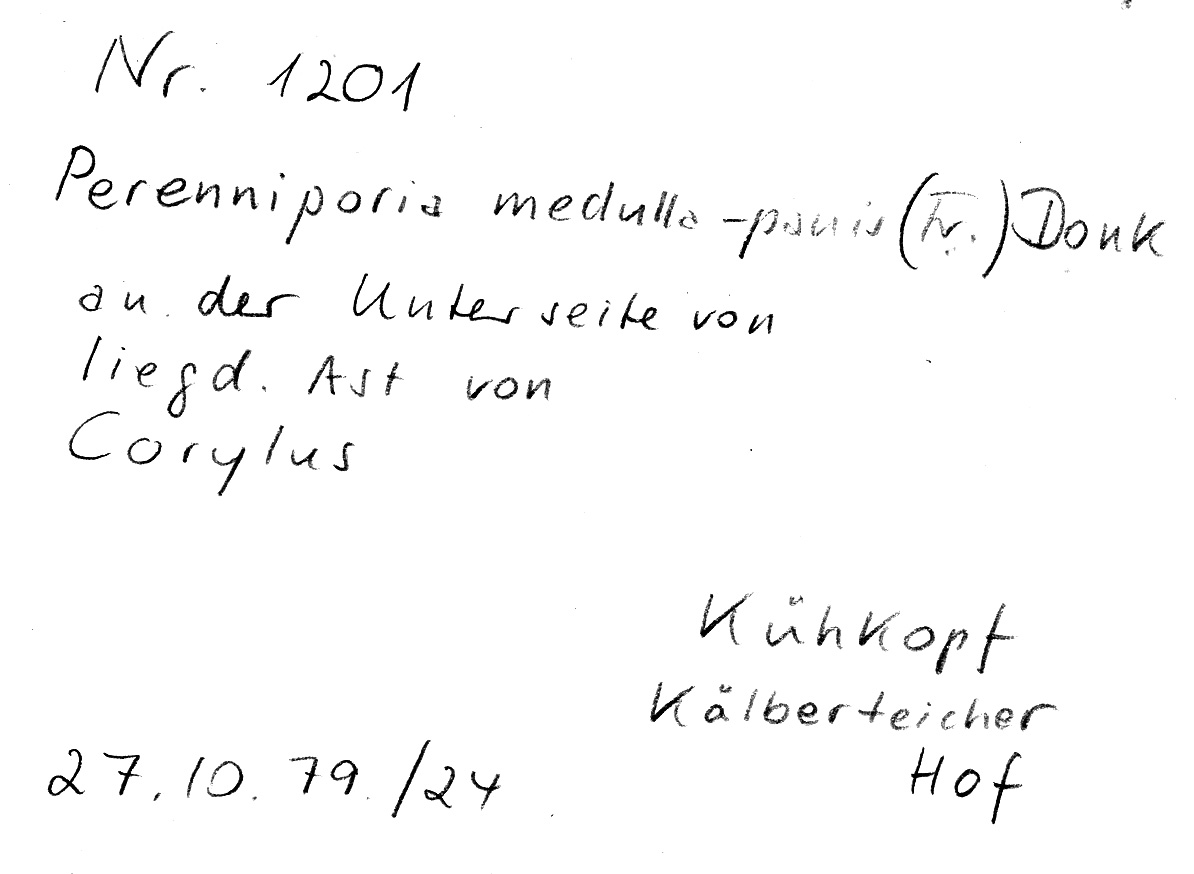 Nr. 1201
Perenniporia medulla-panis (Fr.) Donk
an der Unterseite von
liegd. Ast von
Corylus
Kühkopf
Kälberteicher
Hof
27.10.79./24